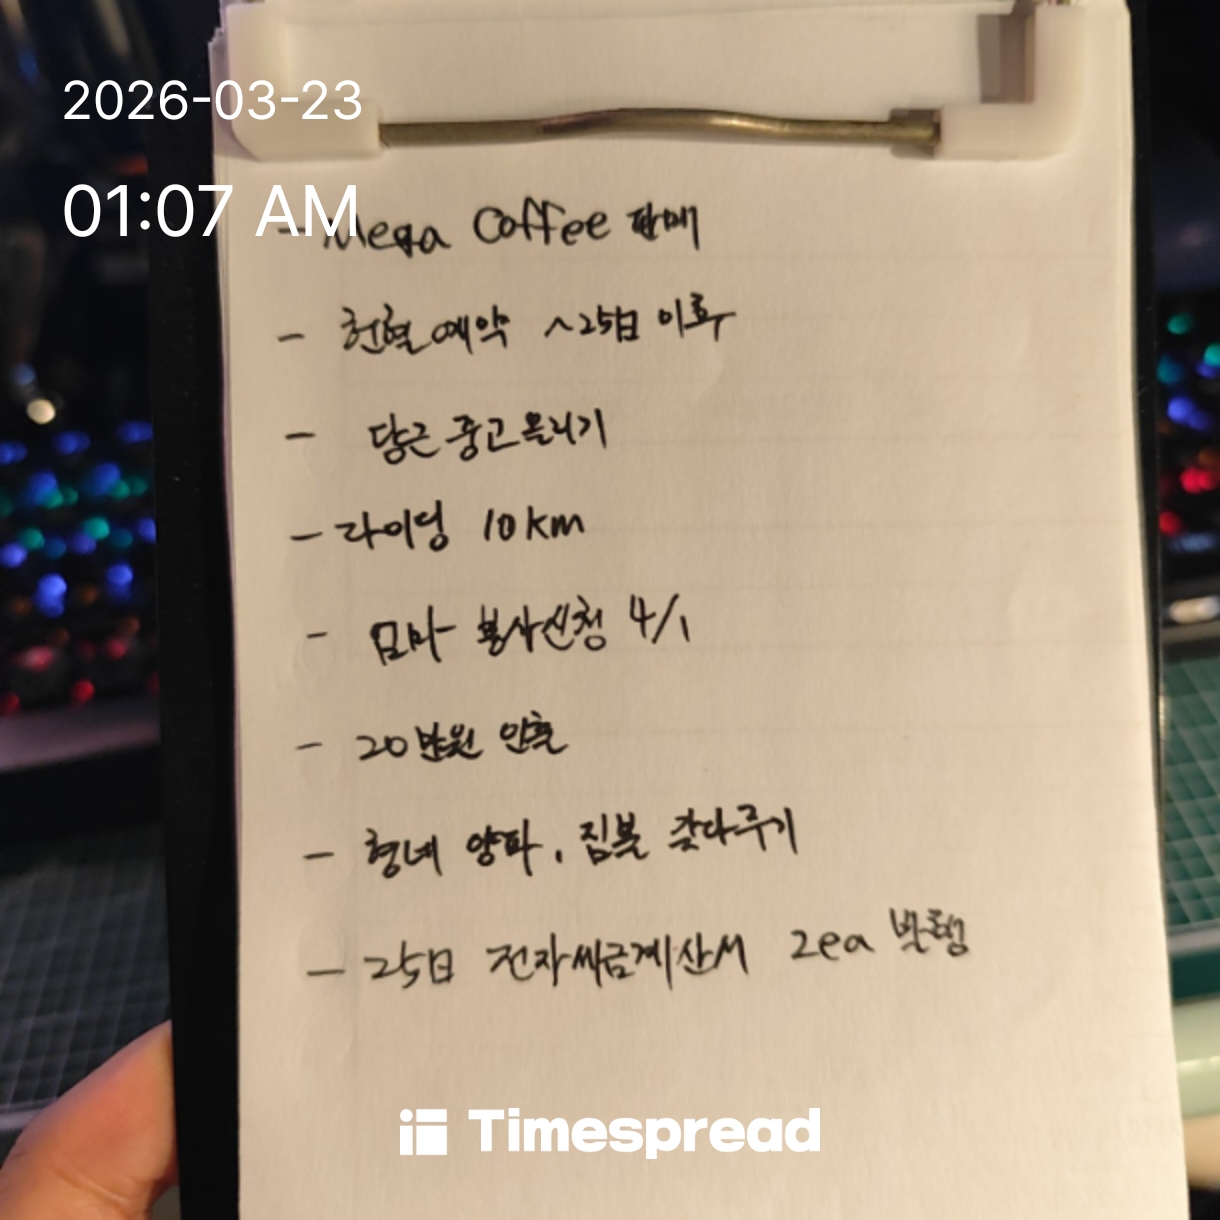 2026-03-23
01:07 AM
- Mega Coffee 판매
- 헌혈예약 ~25日 이후
- 당근 중고 올리기
- 라이딩 10km
- 엄마 봉사신청 4/1
- 20만원 인출
- 형네 양파, 짐볼 갖다주기
- 25日 전자세금계산서 2ea 발행
Timespread